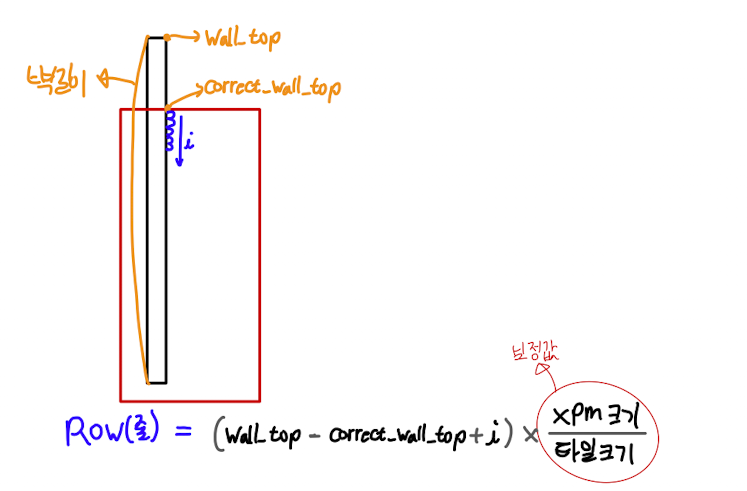 Wall_top
벽길이
correct_wall_top
i
보정값
Row(줄) = (Wall_top - correct_wall_top + i) × xpm 크기 / 타일크기